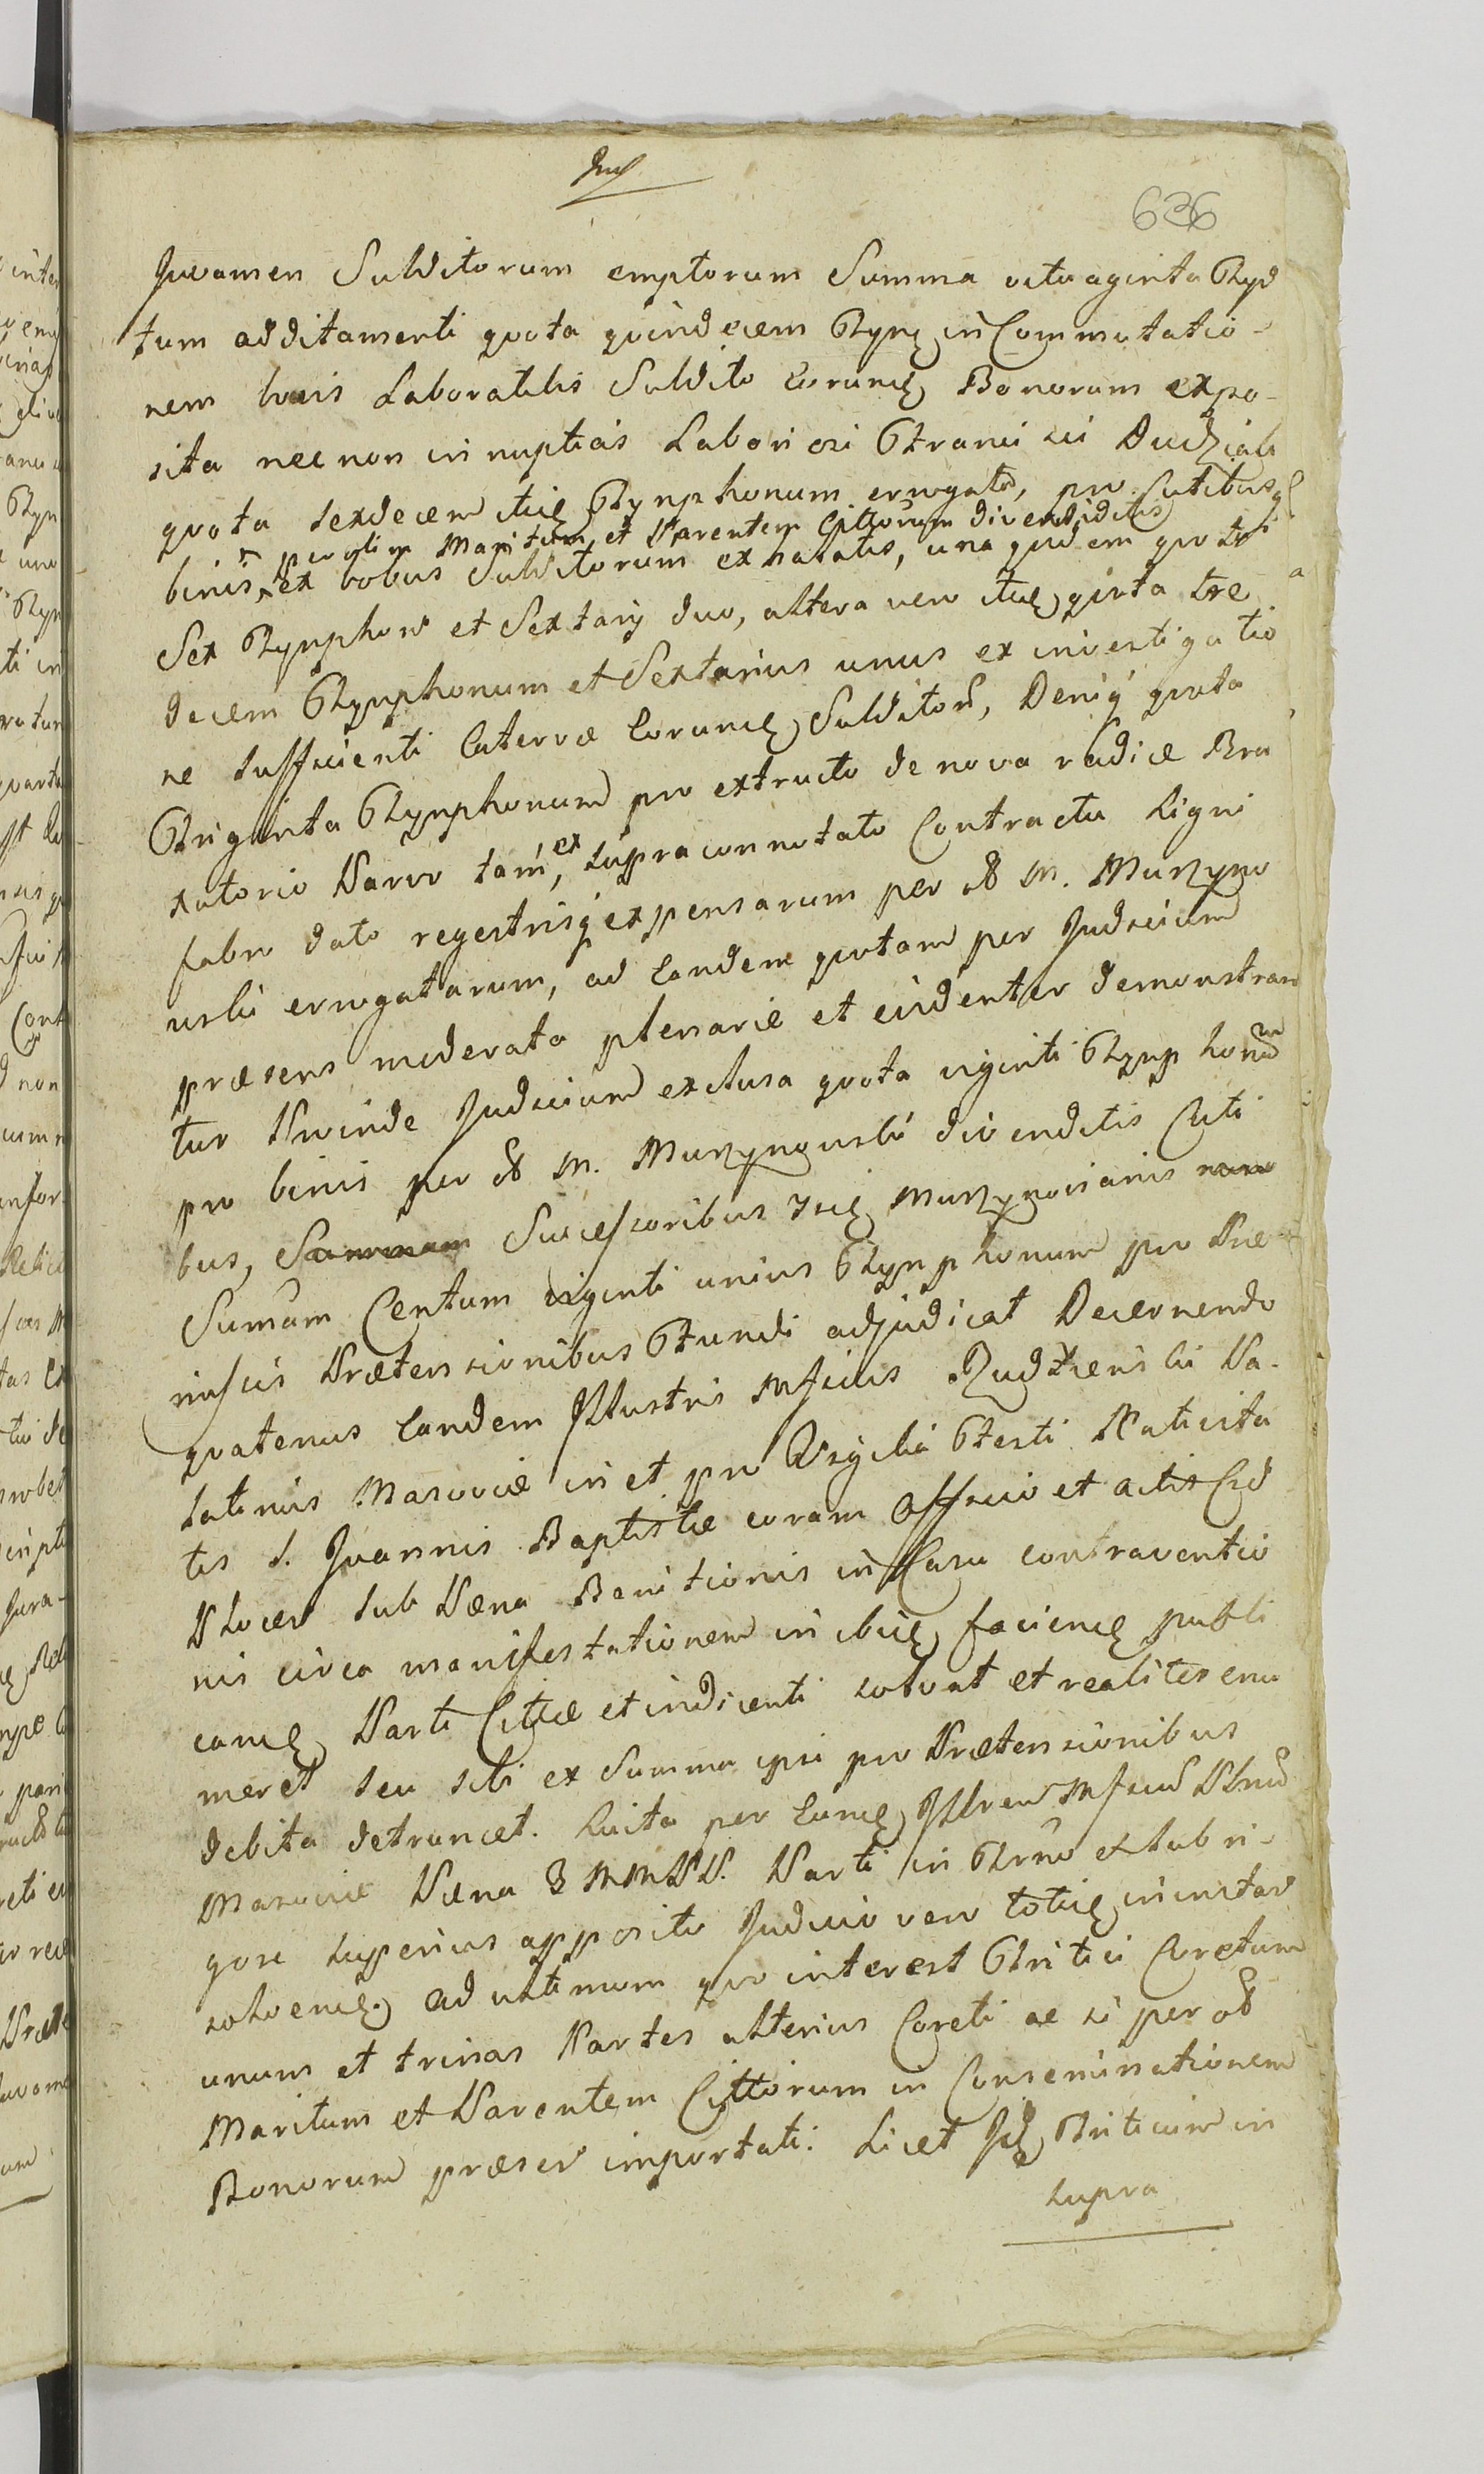 Juv
636
Juvamen Subditorum emptorum Summa octuaginta Rhyp
tum additamenti quota quindecem Rhyp in Commutatio-
nem bovis Laboratilis Subdito eorund Bonorum expo-
sita nec non in nuptias Laboriosi Francisci
quota sexdecem Rhynphonum errogata, pro Cutibus
per olim Maritum et Parentem Cittorum divendiditis
binis, ex bobus Subditorum exhalatis, una quidem quota
Sex Rhynphon et Sextarij duo, altera vero itid quota tre
decem Rhynphonum et Sextarius unus ex investigatio
ne sufficienti Catervæ eorund Subditor, Deniq quota
Triginta Rhynphonum pro extructo de nova radice Bra
xatorio Parvo tam, ex supraconnotato Contractu Ligni
fabro dato regestrisq expensarum per ol M. Murzyno
wski errogatarum, ad eandem quotam per Judicium
præsens moderata plenarie et evidenter demonstran
tur Proinde Judicium exclusa quota viginti Rhynphonum
pro binis per ol M. Murzynowski divenditis Cuti
bus, Successoribus Murzynovianis
Summam Centum viginti unius Rhynphonum pro Præ
missis Prætensionibus Fundi adjudicat Decernendo
quatenus eandem Illustris Mficus Rudzienski Pa-
latinus Masoviæ in et pro Vigilia Festi Nativita
tis S. Joannis Baptistæ coram Officio et actis
Plocen sub Pæna Banitionis in Casu contraventio
nis circa manifestationem in ibid faciend publi
cand Parti Cittæ et indicenti solvat et realiter enu
meret seu sibi ex Summa ipsi pro Prætensionibus
debita detruncet. Luita per eund Illrem Mficum Plnum
Masoviæ Pæna 3 MMPP. Parti in Trno et sub ri-
gore superius apposito Judicio vero totid in instar
solvend. Ad ultimum quo interest Tritici Coretum
unum et trinas Partes alterius Coreti ac si per ol
Maritum et Parentem Cittorum in Conseminationem
Bonorum præsen importati. Licet Triticum in
supra